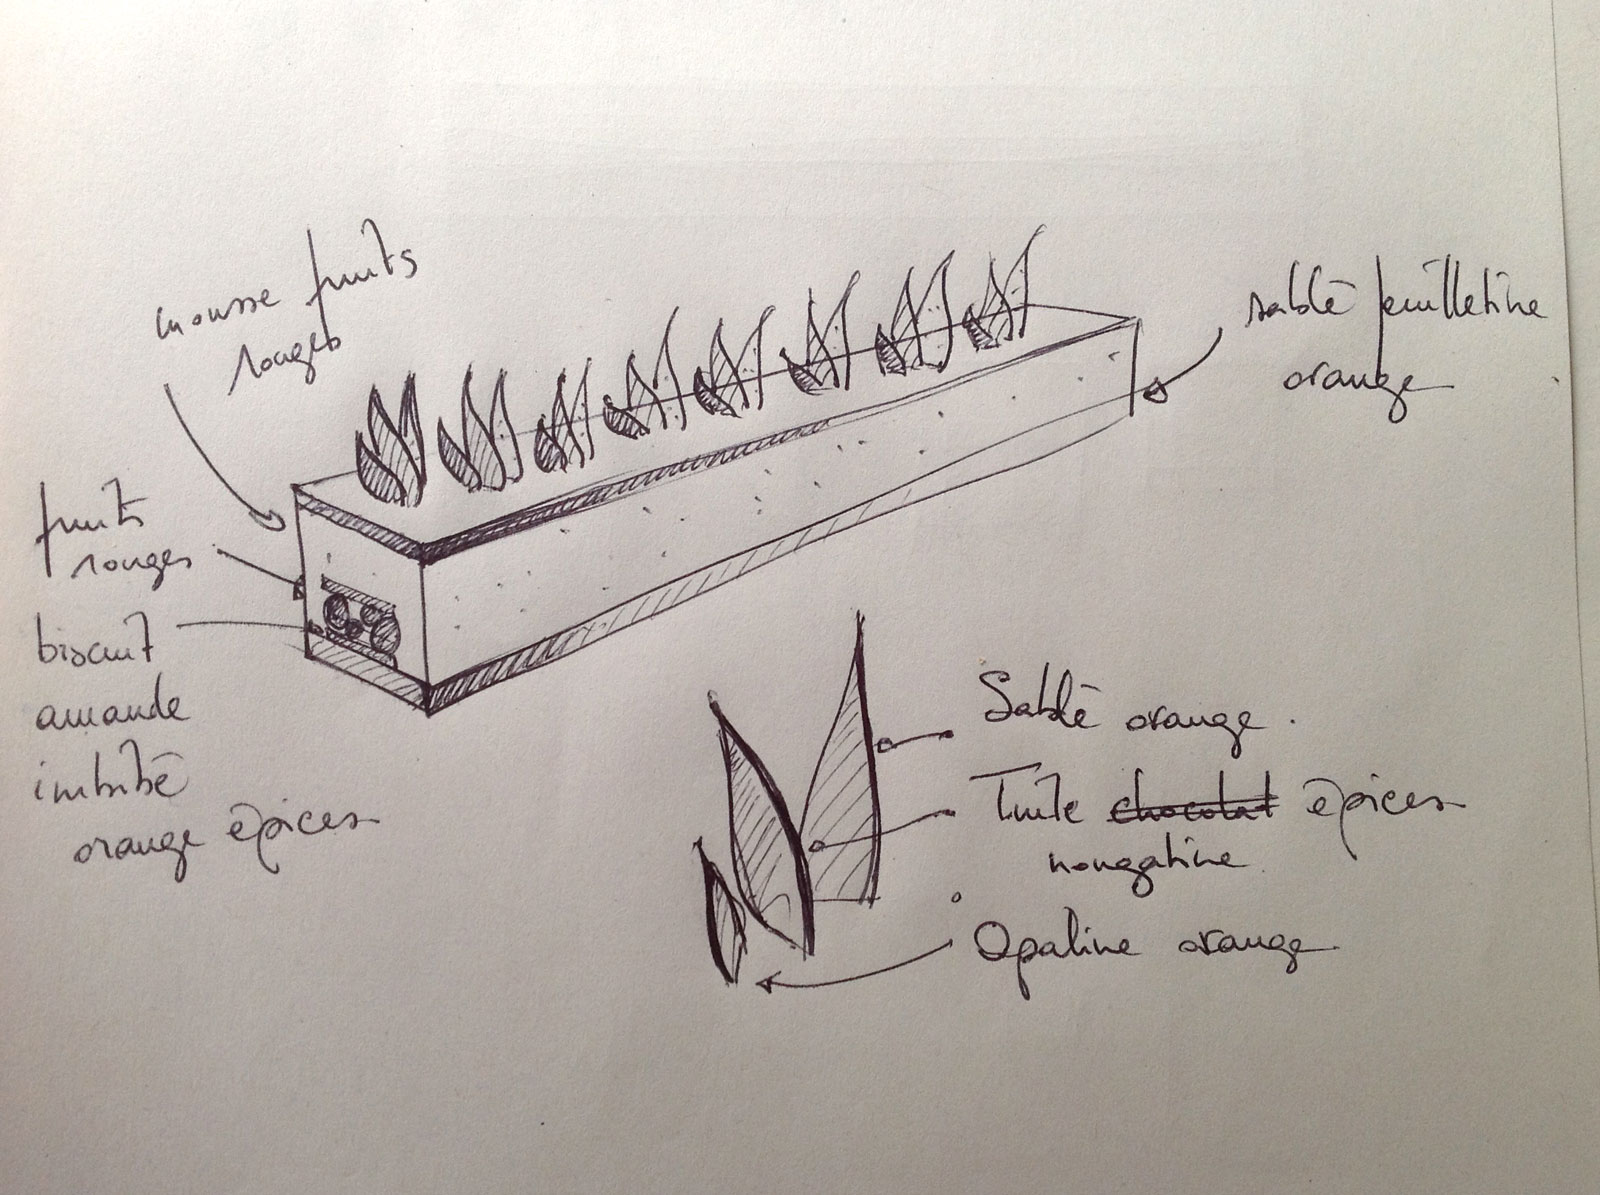 mousse fruits
rouges
sablé feuilletine
orange
fruits
rouges
biscuit
amande
imbibé
orange épices
Sablé orange.
Tuile chocolat épices
nougatine
Opaline orange